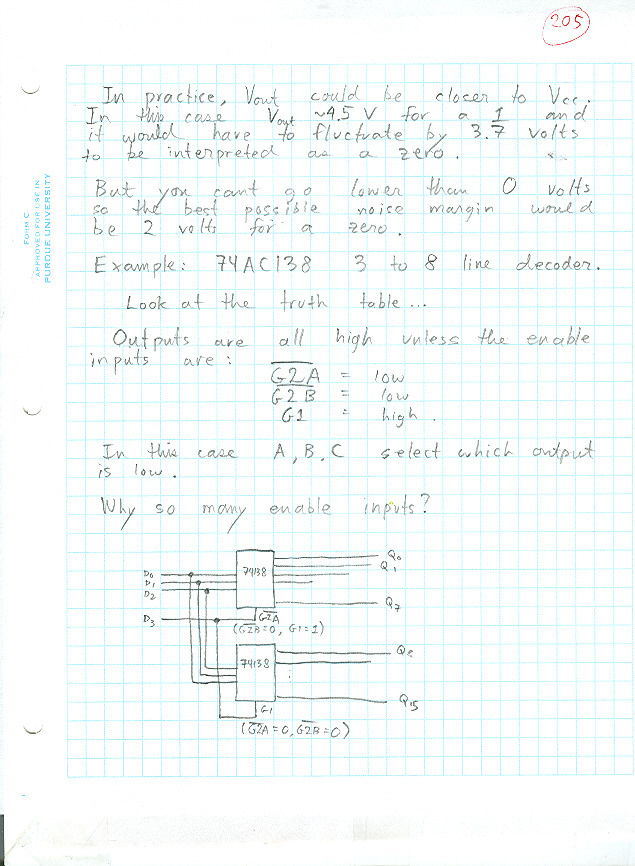 205
In practice, Vout could be closer to Vcc.
In this case Vout ~4.5 V for a 1 and
it would have to fluctuate by 3.7 volts
to be interpreted as a zero.
But you cant go lower than 0 volts
so the best possible noise margin would
be 2 volts for a zero.
Example: 74AC138 3 to 8 line decoder.
Look at the truth table...
Outputs are all high unless the enable
inputs are:
G̅2̅A̅ = low
G̅2̅B̅ = low
G1 = high.
In this case A, B, C select which output
is low.
Why so many enable inputs?
D0
D1
D2
D3
74138
Q0
Q1
Q7
G̅2̅A̅
(G̅2̅B̅=0, G1=1)
74138
Q8
Q15
G1
(G̅2̅A̅=0, G̅2̅B̅=0)
FORM C
APPROVED FOR USE IN
PURDUE UNIVERSITY